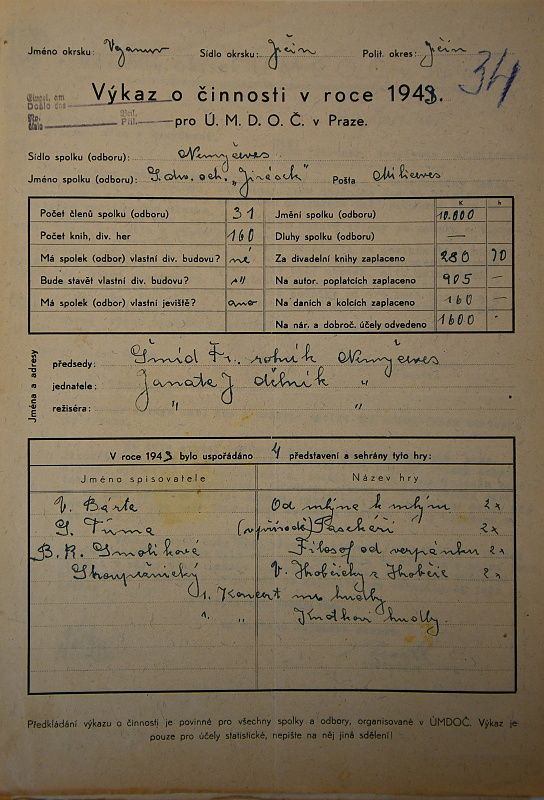 Jméno okrsku: Sídlo okrsku: Jičín Polit. okres: Jičín
34
Výkaz o činnosti v roce 1943.
pro Ú. M. D. O. Č. v Praze.
Eingel. am
Došlo dne
No.
Číslo
Beil.
Příl.
Sídlo spolku (odboru): Nemyčeves
Jméno spolku (odboru): S. div. och. „Jirásek" Pošta Miličeves
K h
Počet členů spolku (odboru) 31 Jmění spolku (odboru) 10.000
Počet knih, div. her 160 Dluhy spolku (odboru) —
Má spolek (odbor) vlastní div. budovu? né Za divadelní knihy zaplaceno 280 70
Bude stavět vlastní div. budovu? „ Na autor. poplatcích zaplaceno 905 —
Má spolek (odbor) vlastní jeviště? ano Na daních a kolcích zaplaceno 160 —
Na nár. a dobroč. účely odvedeno 1600 -
Jména a adresy
předsedy: Šmíd Fr. rolník Nemyčeves
jednatele: Janata J dělník „
režiséra: „ „
V roce 1943 bylo uspořádáno 4 představení a sehrány tyto hry:
Jméno spisovatele Název hry
V. Bárta Od mlýna k mlýnu 2x
G. Tůma (v přírodě) Pašeráci 2x
B. R. Smolíková Filosof od verpánku 2x
Stroupežnický 2x
1. Koncert hudby
1. „ hudby
Předkládání výkazu o činnosti je povinné pro všechny spolky a odbory, organisované v ÚMDOČ. Výkaz je
pouze pro účely statistické, nepište na něj jiná sdělení!